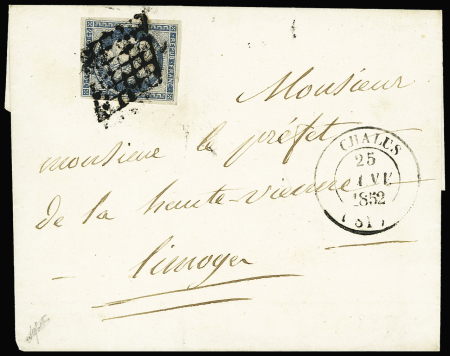 Monsieur
monsieur le préfet
de la haute-vienne
limoges
CHALUS
25
1852